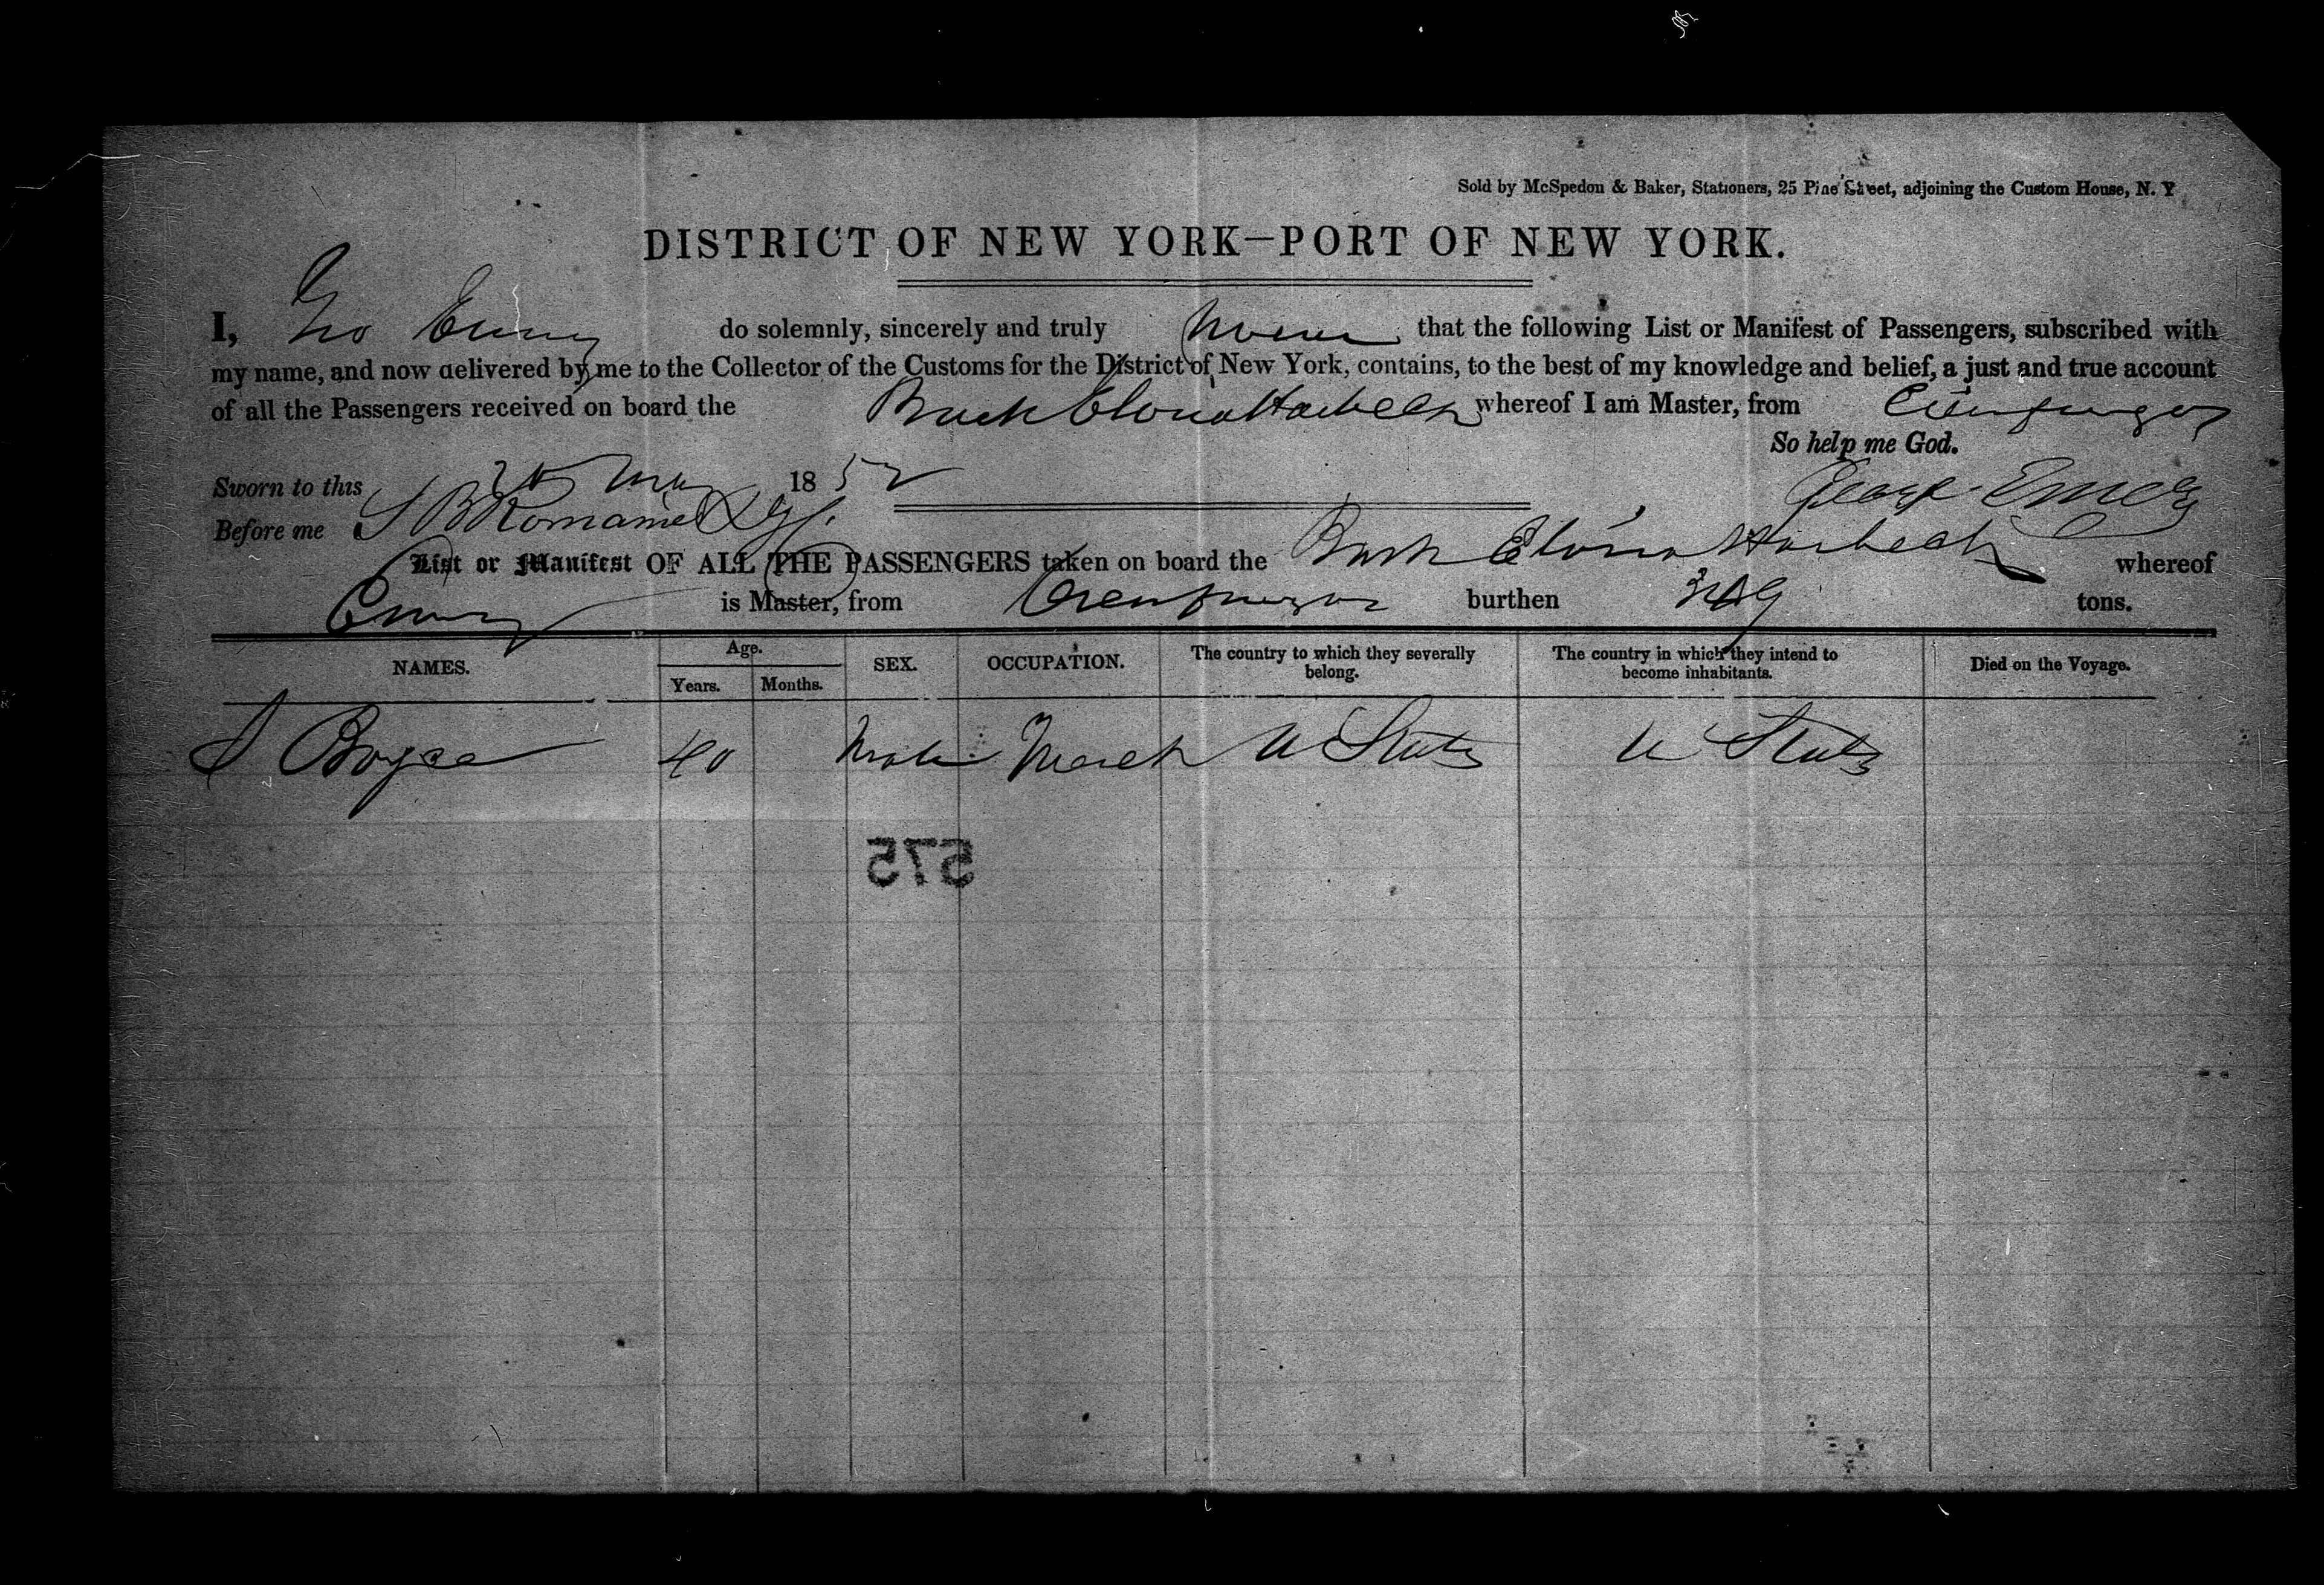 Sold by McSpedon & Baker, Stationers, 25 Pine Street, adjoining the Custom House, N. Y
DISTRICT OF NEW YORK—PORT OF NEW YORK.
I, Geo Emery do solemnly, sincerely and truly swear that the following List or Manifest of Passengers, subscribed with
my name, and now delivered by me to the Collector of the Customs for the District of New York, contains, to the best of my knowledge and belief, a just and true account
of all the Passengers received on board the Bark Harbeck whereof I am Master, from Cienfuegos
So help me God.
Sworn to this 1852 George Emery
Before me
List or Manifest OF ALL THE PASSENGERS taken on board the Bark Harbeck whereof
Emery is Master, from Cienfuegos burthen tons.
NAMES. Age. Years. Months. SEX. OCCUPATION. The country to which they severally belong. The country in which they intend to become inhabitants. Died on the Voyage.
Boyce 40 Male Merch U States U States
575